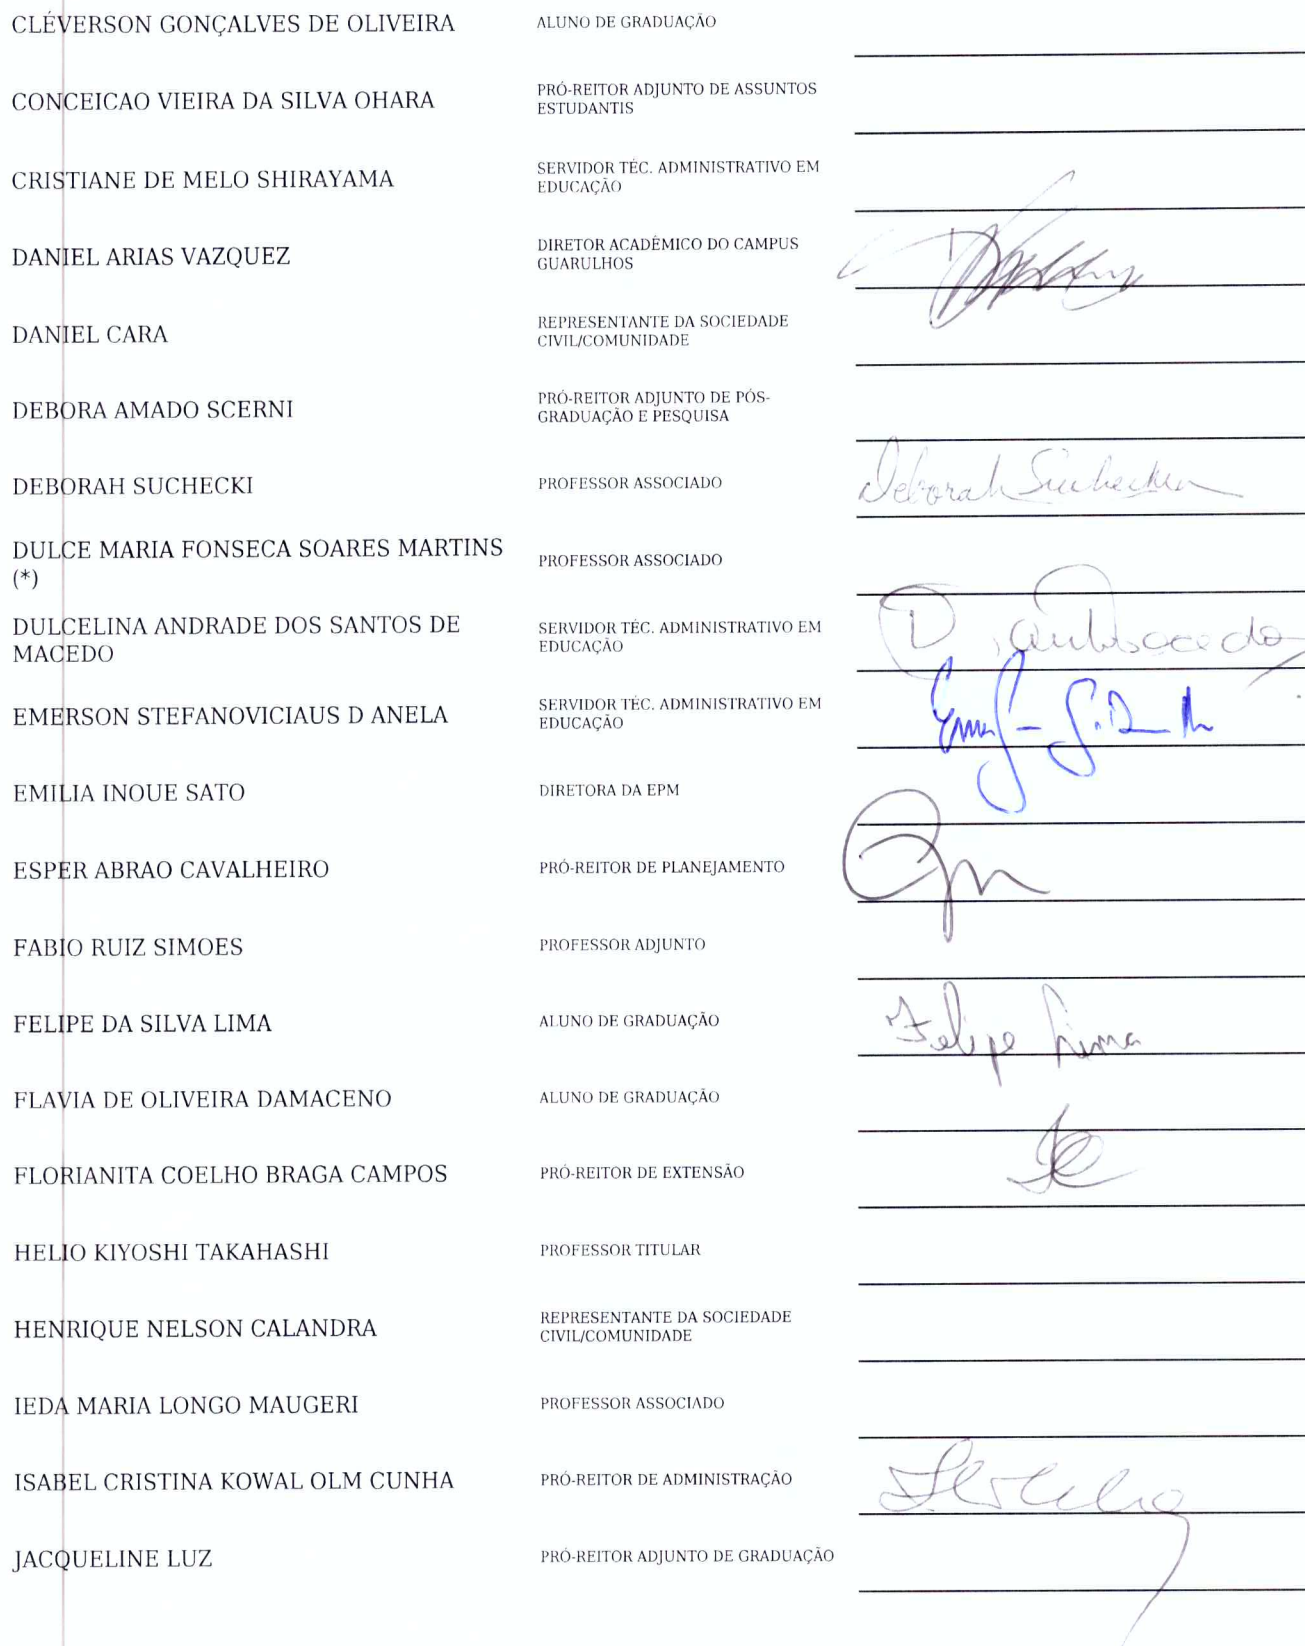 CLÉVERSON GONÇALVES DE OLIVEIRA ALUNO DE GRADUAÇÃO
CONCEICAO VIEIRA DA SILVA OHARA PRÓ-REITOR ADJUNTO DE ASSUNTOS
ESTUDANTIS
CRISTIANE DE MELO SHIRAYAMA SERVIDOR TÉC. ADMINISTRATIVO EM
EDUCAÇÃO
DANIEL ARIAS VAZQUEZ DIRETOR ACADÊMICO DO CAMPUS
GUARULHOS
DANIEL CARA REPRESENTANTE DA SOCIEDADE
CIVIL/COMUNIDADE
DEBORA AMADO SCERNI PRÓ-REITOR ADJUNTO DE PÓS-
GRADUAÇÃO E PESQUISA
DEBORAH SUCHECKI PROFESSOR ASSOCIADO Deborah Suchecki
DULCE MARIA FONSECA SOARES MARTINS PROFESSOR ASSOCIADO
(*)
DULCELINA ANDRADE DOS SANTOS DE SERVIDOR TÉC. ADMINISTRATIVO EM
MACEDO EDUCAÇÃO
EMERSON STEFANOVICIAUS D ANELA SERVIDOR TÉC. ADMINISTRATIVO EM
EDUCAÇÃO
EMILIA INOUE SATO DIRETORA DA EPM
ESPER ABRAO CAVALHEIRO PRÓ-REITOR DE PLANEJAMENTO
FABIO RUIZ SIMOES PROFESSOR ADJUNTO
FELIPE DA SILVA LIMA ALUNO DE GRADUAÇÃO Felipe Lima
FLAVIA DE OLIVEIRA DAMACENO ALUNO DE GRADUAÇÃO
FLORIANITA COELHO BRAGA CAMPOS PRÓ-REITOR DE EXTENSÃO
HELIO KIYOSHI TAKAHASHI PROFESSOR TITULAR
HENRIQUE NELSON CALANDRA REPRESENTANTE DA SOCIEDADE
CIVIL/COMUNIDADE
IEDA MARIA LONGO MAUGERI PROFESSOR ASSOCIADO
ISABEL CRISTINA KOWAL OLM CUNHA PRÓ-REITOR DE ADMINISTRAÇÃO
JACQUELINE LUZ PRÓ-REITOR ADJUNTO DE GRADUAÇÃO